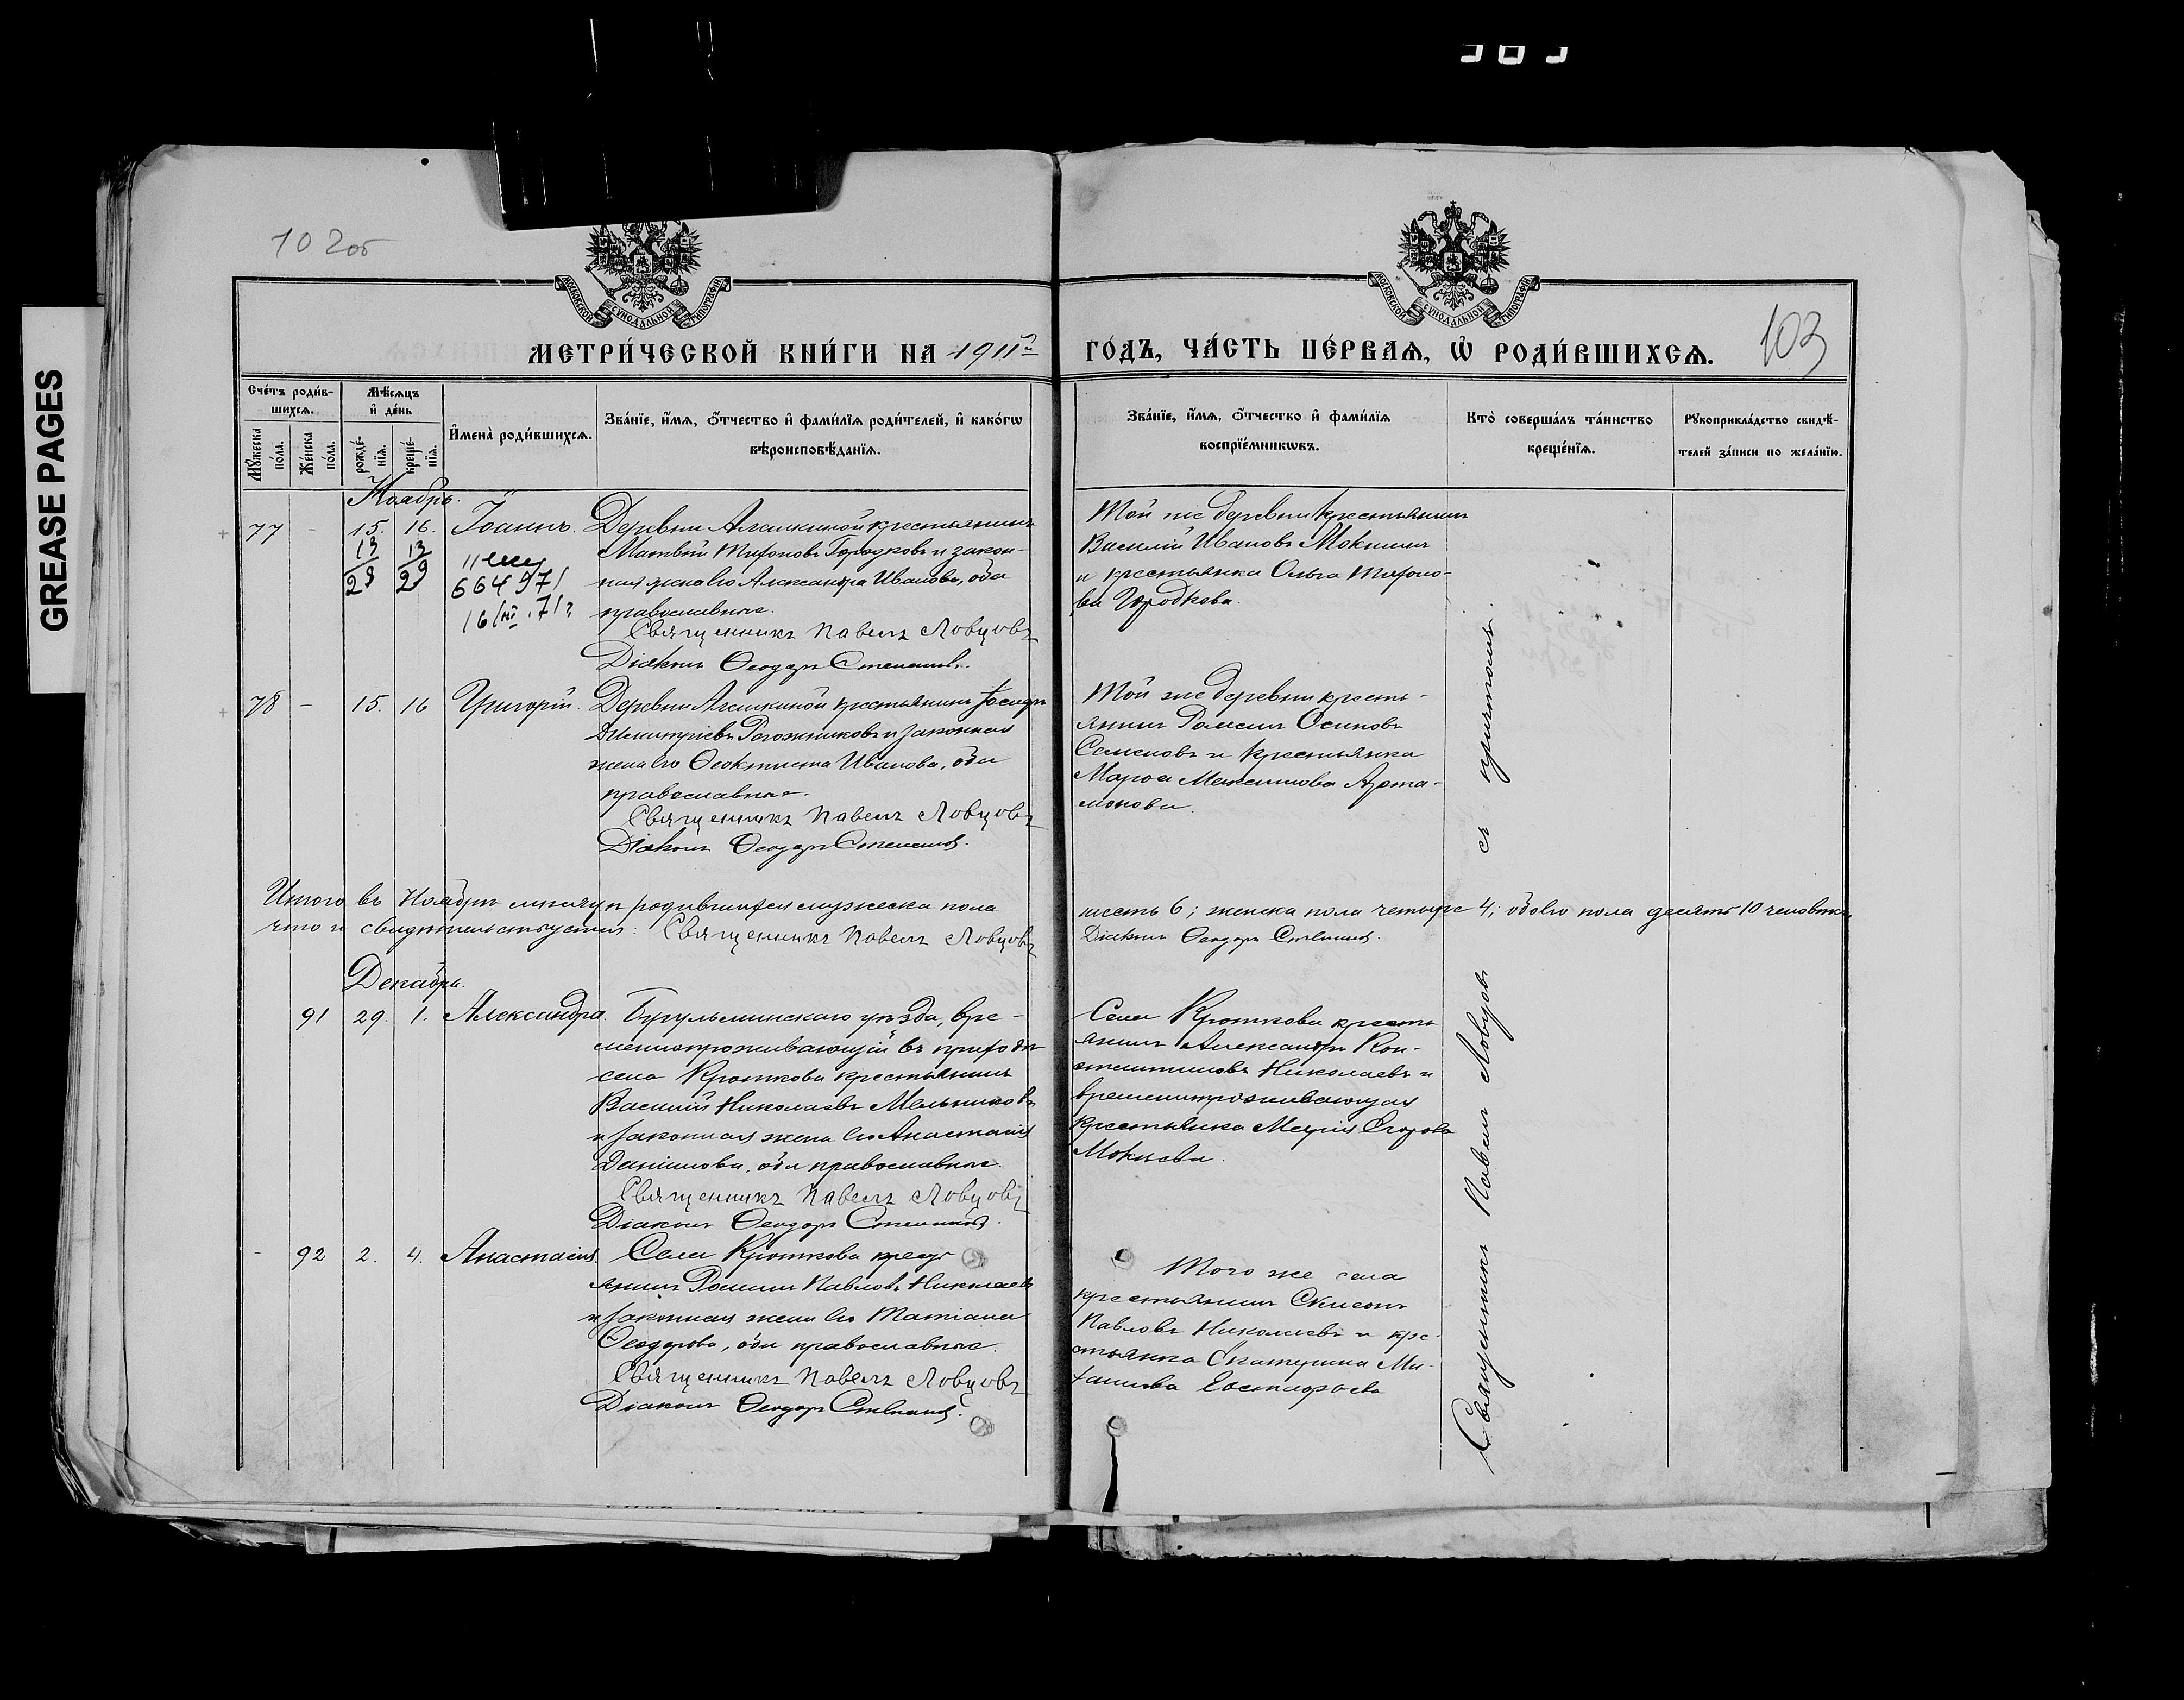 GREASE PAGES
102об
МОСКОВСКОЙ СѴНОДАЛЬНОЙ ТИПОГРАФІИ
МОСКОВСКОЙ СѴНОДАЛЬНОЙ ТИПОГРАФІИ
МЕТРИ́ЧЕСКОЙ КНИ́ГИ НА 1911й
ГО́ДЪ, ЧА́СТЬ ПЕ́РВАѦ, Ѡ҆ РОДИ́ВШИХСѦ.
103
Сче́тъ роди́в-
шихсѧ.
Мѣ́сѧцъ
и҆ де́нь
Мꙋ́жеска по́ла.
Же́нска по́ла.
рожде́-нїѧ.
креще́-нїѧ.
И҆мена̀ роди́вшихсѧ.
Зва́нїе, и҆́мѧ, ѻ҆́тчество и҆ фами́лїѧ роди́телей, и҆ како́гѡ
вѣроисповѣ́данїѧ.
Зва́нїе, и҆́мѧ, ѻ҆́тчество и҆ фами́лїѧ
воспрїе́мникѡвъ.
Кто̀ соверша́лъ та́инство
креще́нїѧ.
Рꙋкоприкла́дство свидѣ́-
телей за́писи по жела́нїю.
Ноябрь.
77 - 15. 16. Іоаннъ. Деревни Алашкиной крестьянинъ
13 13
28 29
664971
Матвѣй Трифоновъ Городковъ и закон-
ная жена его Александра Иванова, оба
православные.
Священникъ Павелъ Ловцовъ
Діаконъ Ѳеодоръ Степановъ.
Той же деревни крестьянинъ
Василій Ивановъ Мокшинъ
и крестьянка Ольга Трифоно-
ва Городкова.
78 - 15. 16 Григорій. Деревни Алашкиной крестьянинъ Іосифъ
Димитріевъ Рогожниковъ и законная
жена его Ѳеоктиста Иванова, оба
православные.
Священникъ Павелъ Ловцовъ
Діаконъ Ѳеодоръ Степановъ.
Той же деревни кресть-
янинъ Романъ Осиповъ
Семеновъ и крестьянка
Марѳа Максимова Арта-
монова.
Итого въ Ноябрѣ мѣсяцѣ родившихся мужеска пола
шесть 6; женска пола четыре 4; обоего пола десять 10 человѣкъ
что и свидѣтельствуемъ: Священникъ Павелъ Ловцовъ
Діаконъ Ѳеодоръ Степановъ.
Декабрь.
91 29. 1. Александра. Бугульминскаго уѣзда, вре-
меннопроживающій въ приходѣ
села Кроткова крестьянинъ
Василій Николаевъ Мельниковъ
и законная жена его Анастасія
Даніилова, оба православные.
Священникъ Павелъ Ловцовъ
Діаконъ Ѳеодоръ Степановъ.
Села Кроткова кресть
янинъ Александръ Кон-
стантиновъ Николаевъ и
временнопроживающая
крестьянка Марія Егорова
Мокшева.
- 92 2. 4. Анастасія. Села Кроткова кресть
янинъ Романъ Павловъ Николаевъ
и законная жена его Татіана
Ѳеодорова, оба православные.
Священникъ Павелъ Ловцовъ
Діаконъ Ѳеодоръ Степановъ.
Того же села
крестьянинъ Симеонъ
Павловъ Николаевъ и кре-
стьянка Екатерина Ми-
хаилова Евстафьева
Священникъ Павелъ Ловцовъ съ причтомъ.